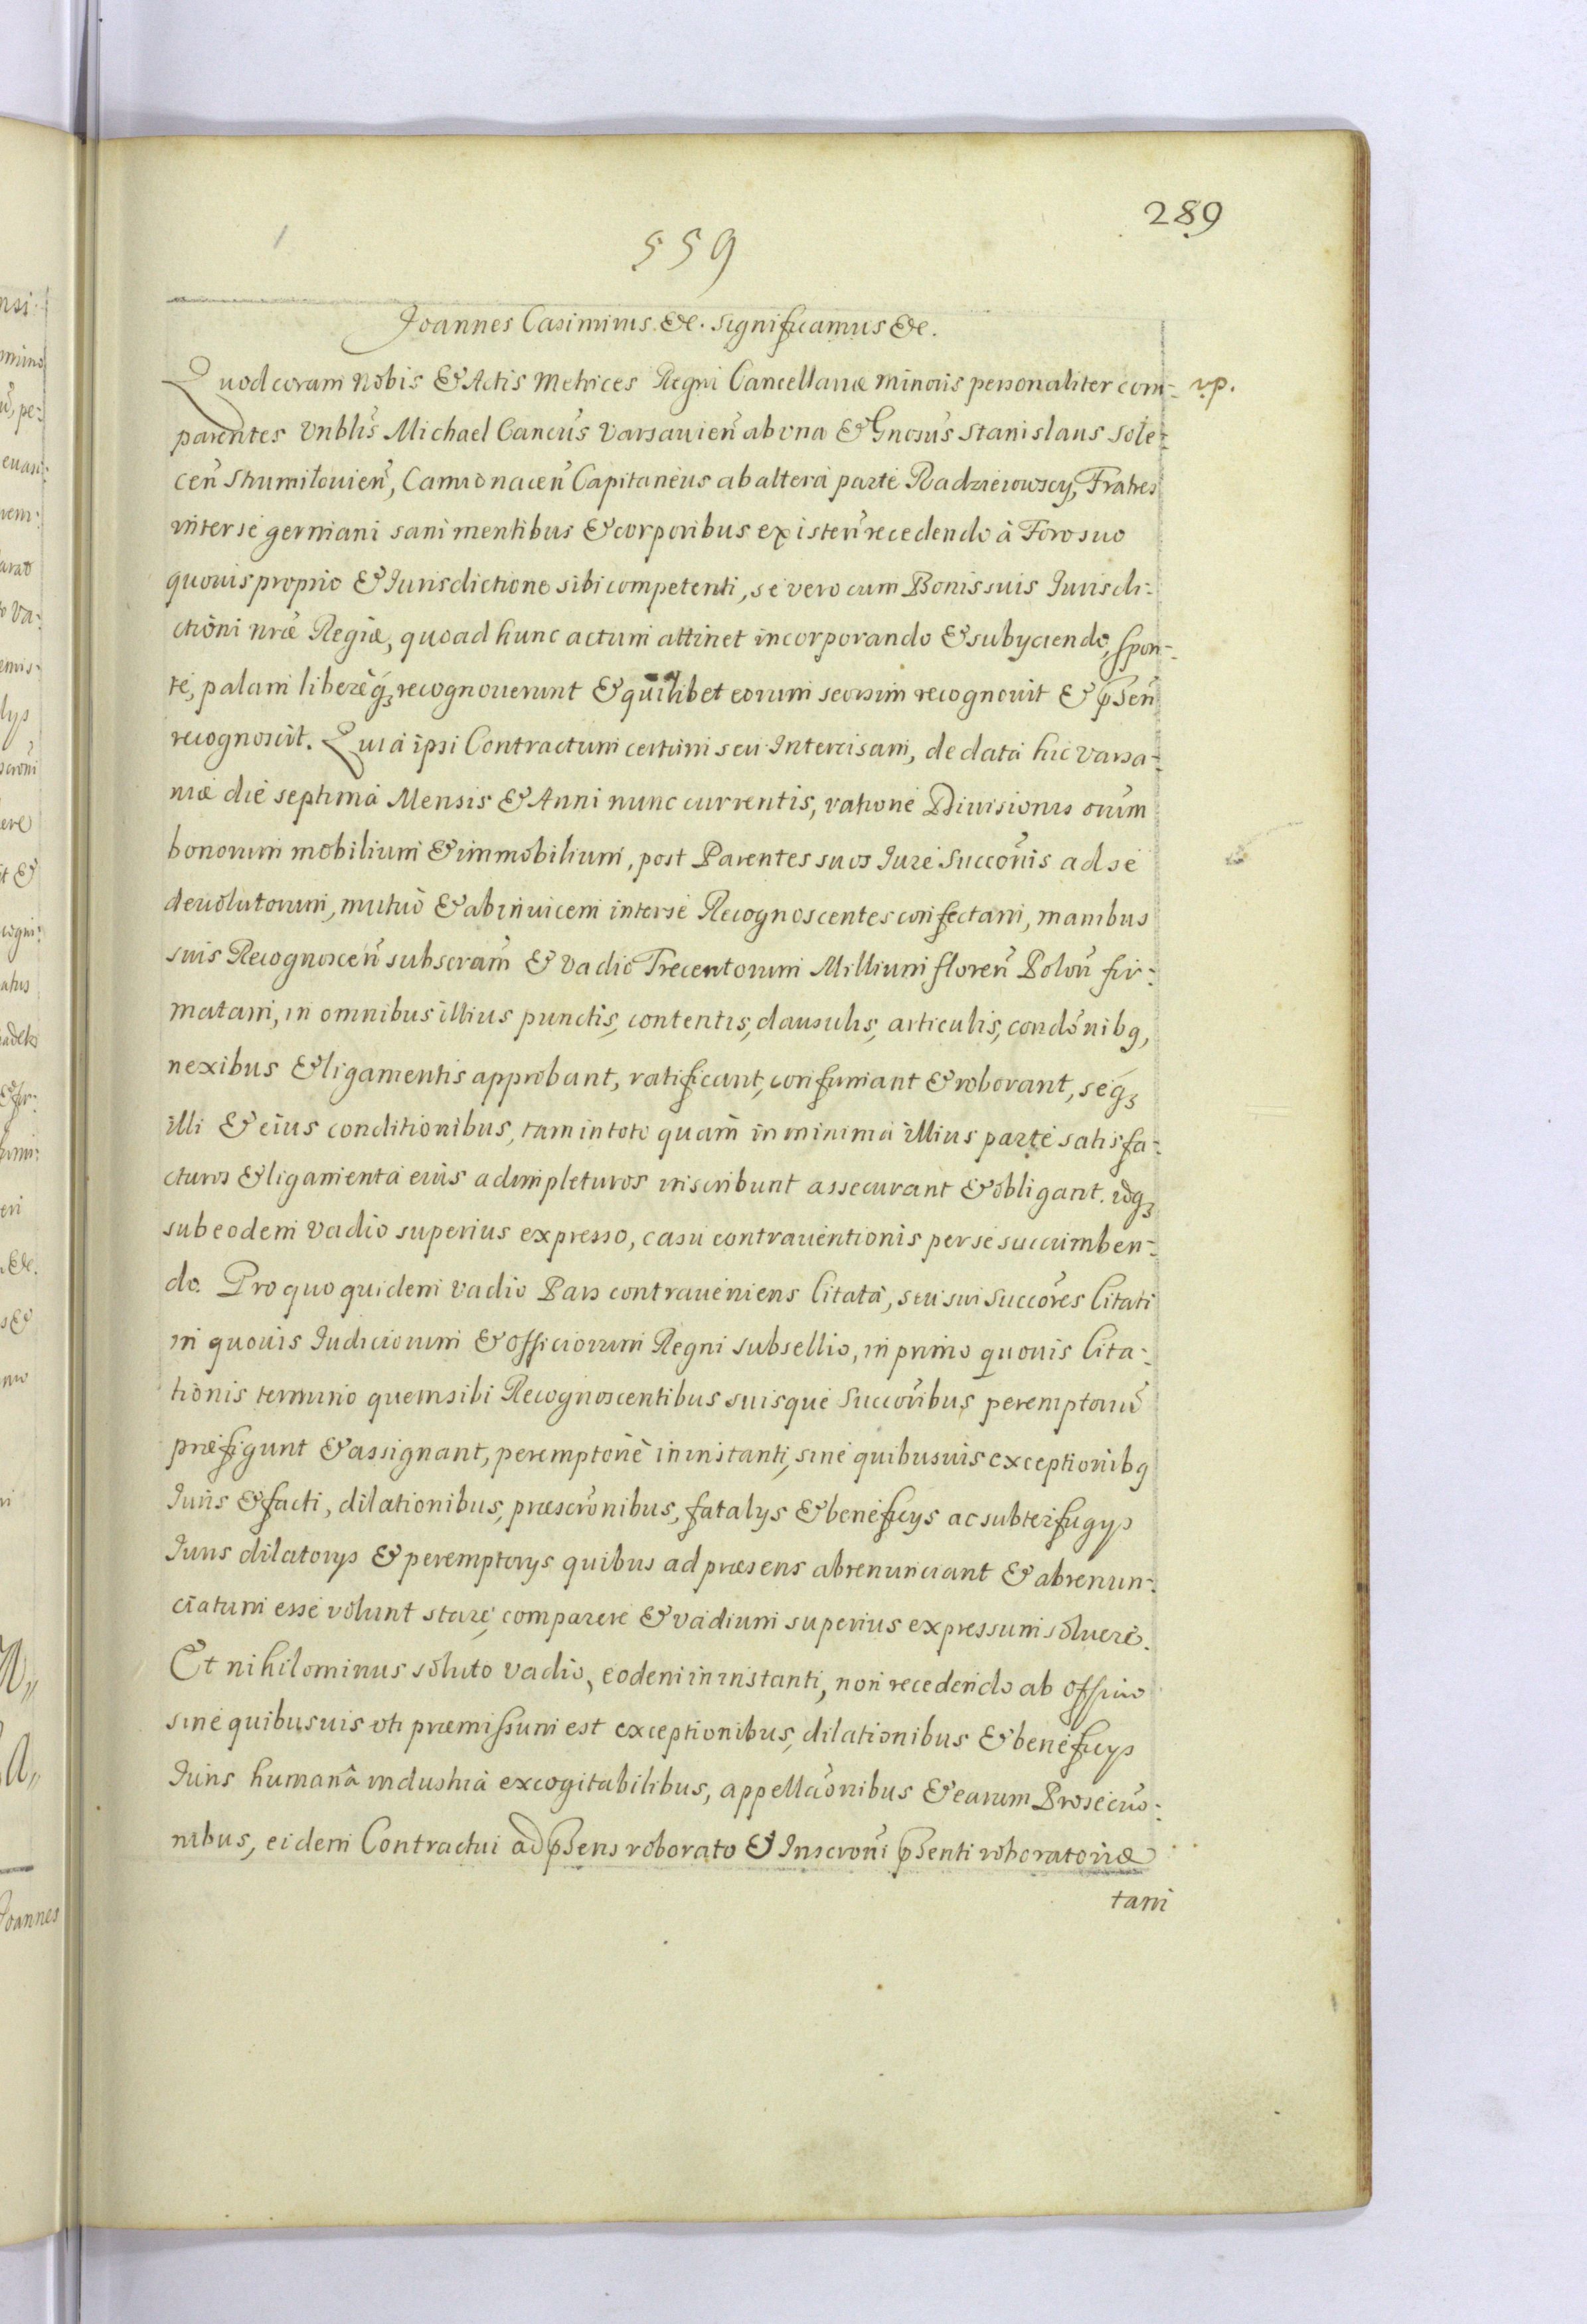 289
559
Joannes Casimirus &c. significamus &c.
Quod coram Nobis & Actis Metrices Regni Cancellariæ minoris personaliter com-
vp.
parentes Vnblis Michael Cancus Varsavien ab vna & Gnosus Stanislaus Sole-
cen Strumiłovien, Camionacen Capitaneus ab altera parte Radzieiowscy, Fratres
inter se germani sani mentibus & corporibus existen recedendo à Foro suo
quovis proprio & Jurisdictione sibi competenti, se vero cum Bonis suis Jurisdi-
ctioni nræ Regiæ, quoad hunc actum attinet incorporando & subyciendo, spon-
te, palam libereq3 recognoverunt & quilibet eorum seorsim recognovit & pñsen
recognoscit. Quia ipsi Contractum certum seu Intercisam, de data hic Varsa-
viæ die septima Mensis & Anni nunc currentis, ratione Divisionis oium
bonorum mobilium & immobilium, post Parentes suos Jure Succonis ad se
devolutorum, mutuò & ab invicem inter se Recognoscentes confectam, manibus
suis Recognoscen subscram & vadio Trecentorum Millium floren Polon fir-
matam, in omnibus illius punctis, contentis, clausulis, articulis, condonibq,
nexibus & ligamentis approbant, ratificant, confirmant & roborant, seq3
illi & eius conditionibus, tam in toto quam in minima illius parte satisfa-
cturos & ligamenta eius adimpleturos inscribunt assecurant & obligant. idq3
sub eodem vadio superius expresso, casu contraventionis per se succumben-
do. Pro quo quidem vadio Pars contraveniens Citata, seu sui Succores Citati
in quovis Judiciorum & Officiorum Regni subsellio, in primo quovis Cita-
tionis termino quem sibi Recognoscentibus suisque Succoribus peremptoriu
præfigunt & assignant, peremptorie in instanti, sine quibusvis exceptionibq
Juris & facti, dilationibus, præscronibus, fatalys & beneficys ac subterfugys
Juris dilatorys & peremptorys quibus ad præsens abrenunciant & abrenun-
ciatum esse volunt stare, comparere & vadium superius expressum solvere.
Et nihilominus soluto vadio, eodem in instanti, non recedendo ab officio
sine quibusvis vti præmissum est exceptionibus, dilationibus & beneficys
Juris humanâ industria excogitabilibus, appellaonibus & earum Prosecuo-
nibus, eidem Contractui ad pñsens roborato & Inscroni pñsenti roboratoriæ
tam